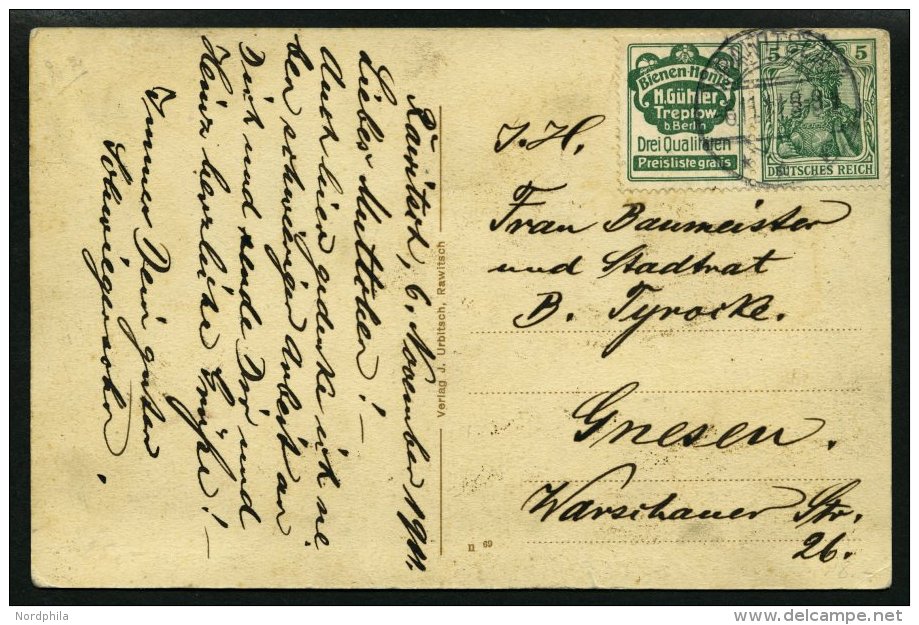 Rawitsch, 6. November 1911.
Liebes Muttchen! —
Auch hier gedenke ich in
der schwierigen Arbeit an
Dich und sende Dir und
Heinz herzliche Grüße! —
Immer Dein guter
Schwiegersohn
Verlag J. Urbitsch, Rawitsch
n 69
Bienen-Honig
H. Gühler
Treptow
b. Berlin
Drei Qualitäten
Preisliste gratis
5 5
DEUTSCHES REICH
I. H.
Frau Baumeister
und Stadtrat
B. Tyrocke.
Gnesen.
Warschauer Str.
26.
Nordphila
delcampe.net